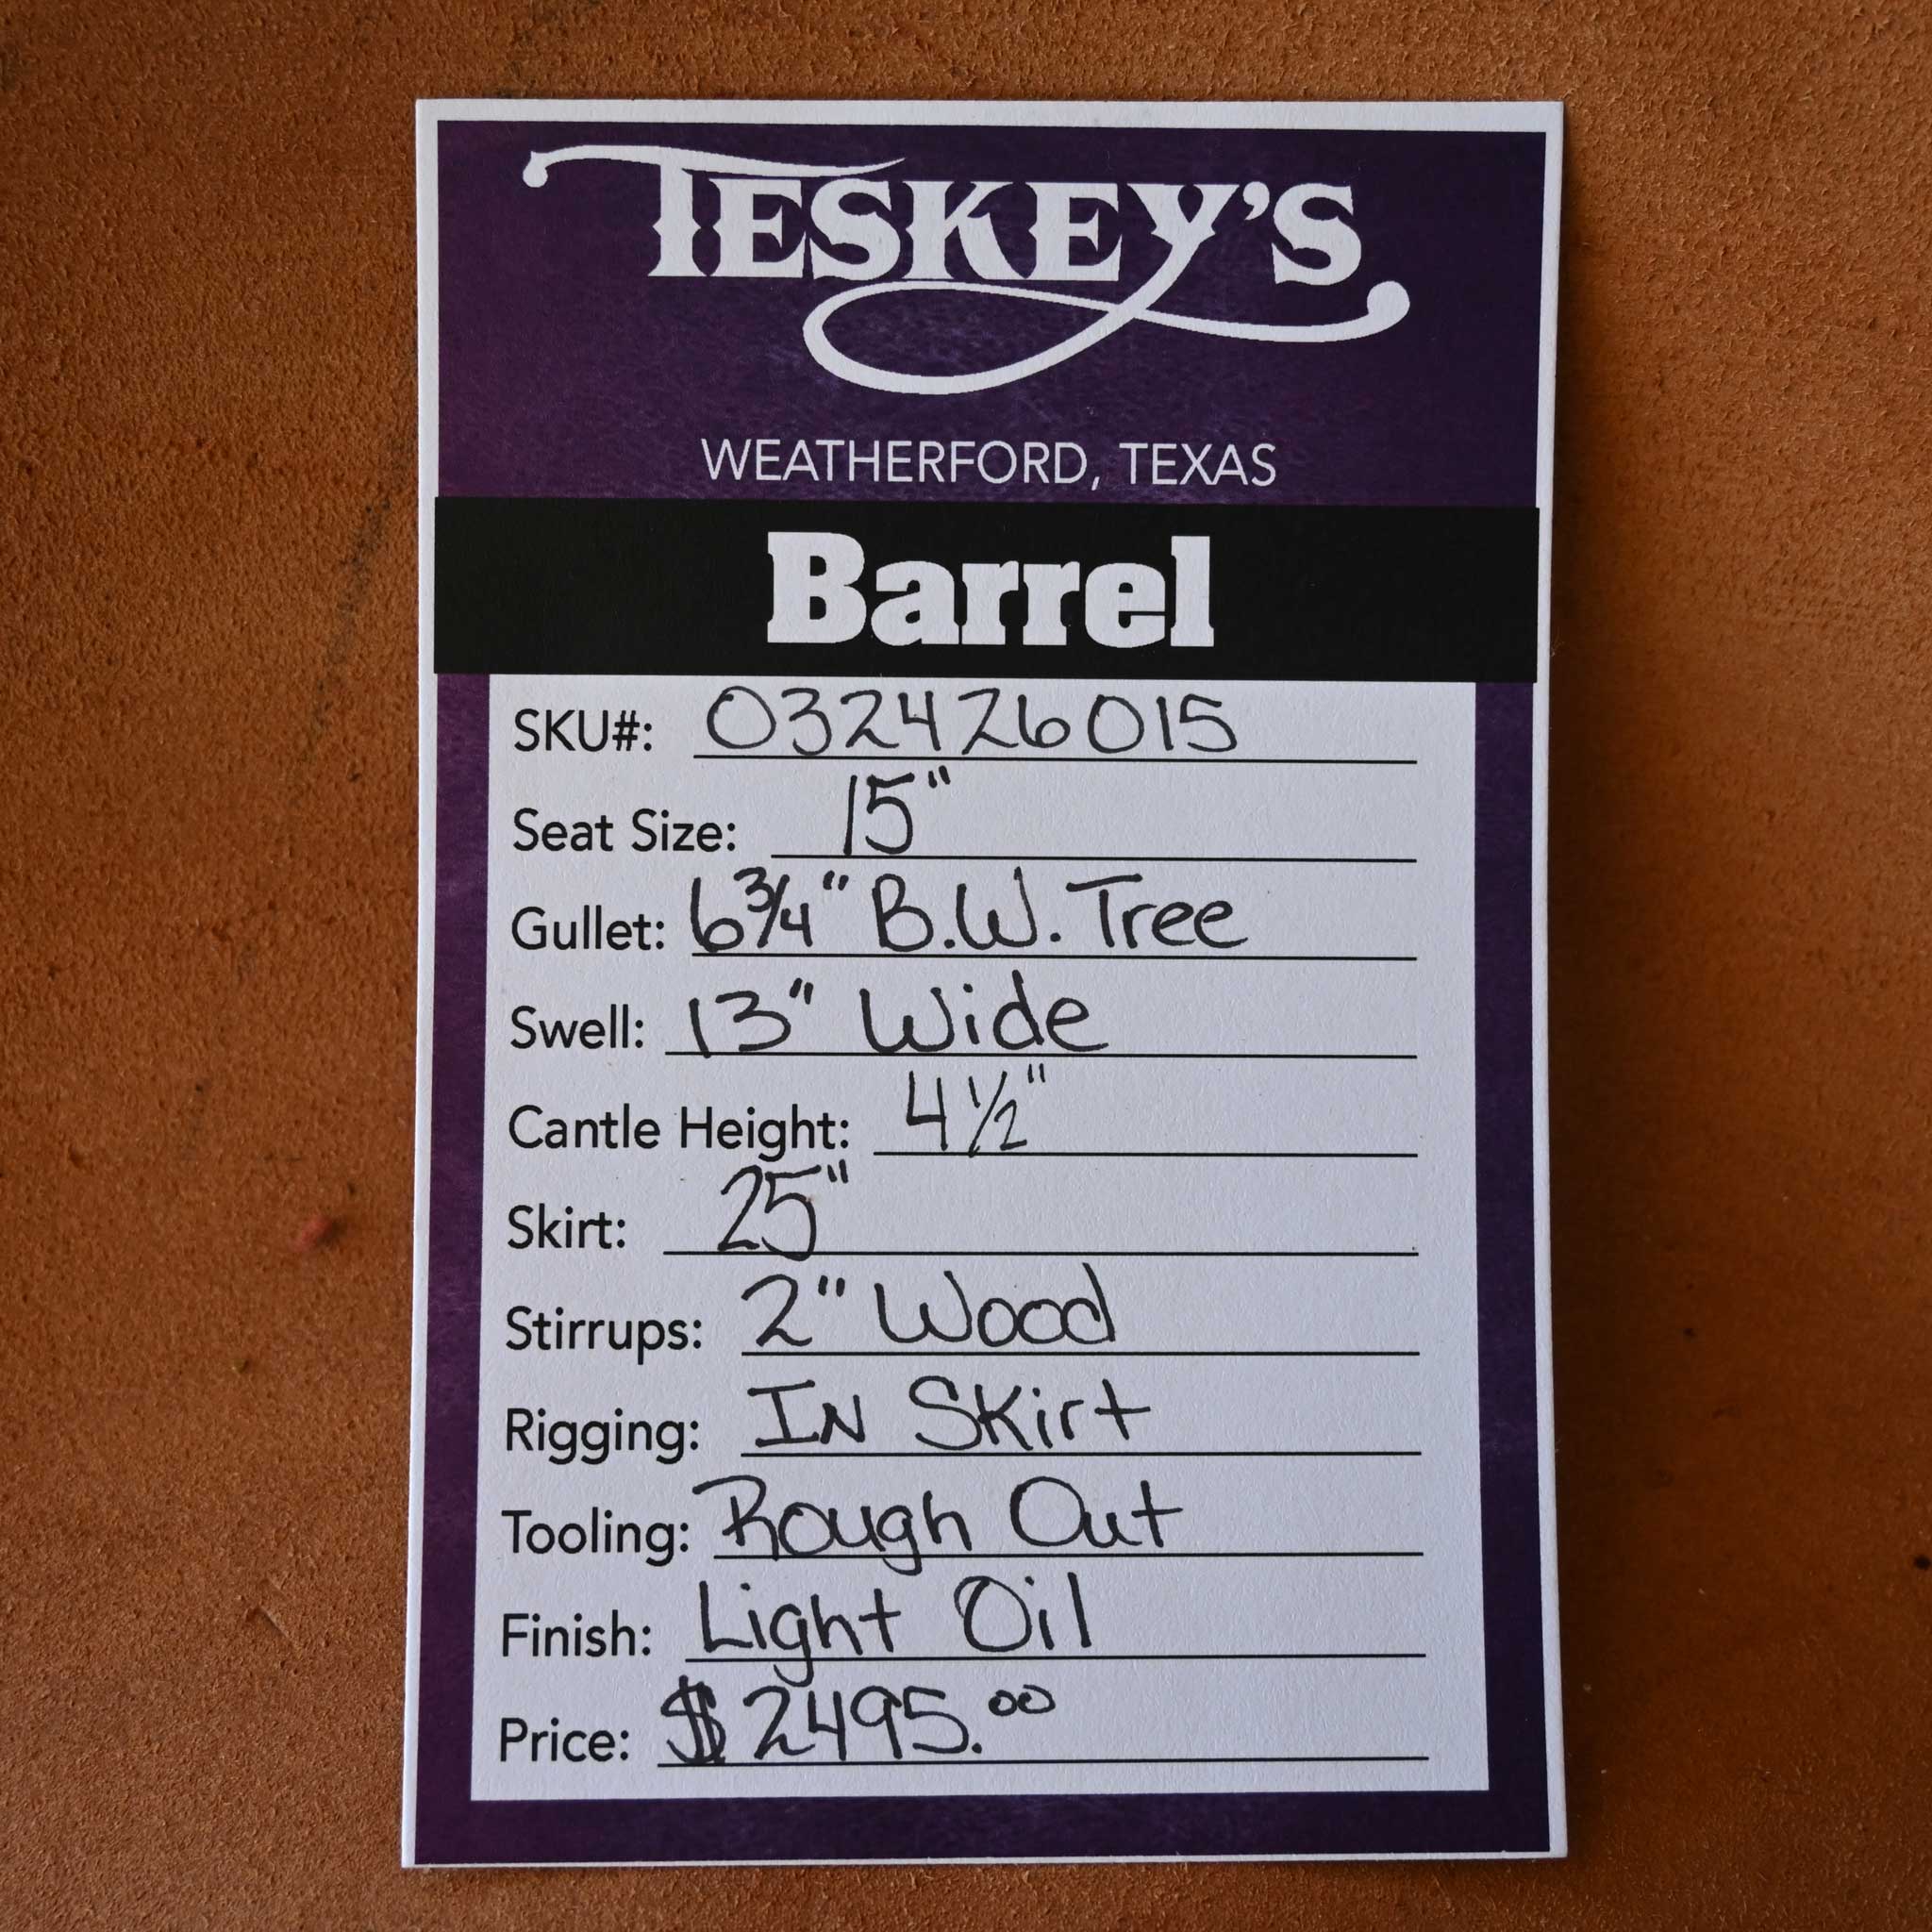 TESKEY'S
WEATHERFORD, TEXAS
Barrel
SKU#: 032426015
Seat Size: 15"
Gullet: 6 3/4" B.W. Tree
Swell: 13" Wide
Cantle Height: 4 1/2"
Skirt: 25"
Stirrups: 2" Wood
Rigging: IN Skirt
Tooling: Rough Out
Finish: Light Oil
Price: $2495.00